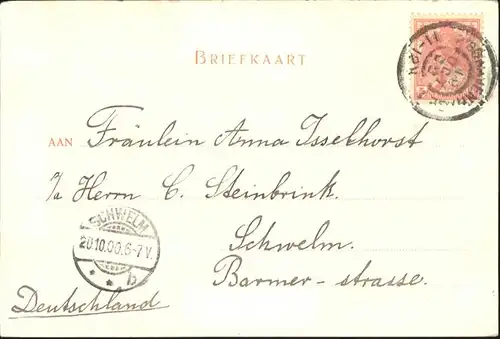 BRIEFKAART
AAN Fräulein Anna Isselhorst
p/a Herrn C. Steinbrink.
Schwelm.
Barmer-strasse.
Deutschland
SCHWELM
20.10.00.6-7V.
* * b
11-12V